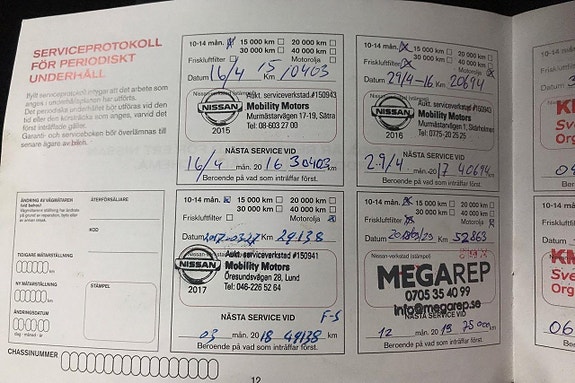 SERVICEPROTOKOLL
FÖR PERIODISKT
UNDERHÅLL
Ifylld serviceprotokoll intygar att det arbete som
anges i underhållsplanen har utförts.
Det periodiska underhållet bör utföras vid den
tid eller den körsträcka som anges, varvid det
först inträffade gäller.
Garanti- och serviceboken bör överlämnas till
senare ägare av bilen.
10-14 mån. 15 000 km 20 000 km
30 000 km 40 000 km
Friskluftfilter Motorolja
Datum 16/4 15 Km 10403
Aukt. serviceverkstad #150943
NISSAN Mobility Motors
Murmästarvägen 17-19, Sätra
2015 Tel: 08-603 27 00
NÄSTA SERVICE VID
16/4 mån. 2016 30403 km
Beroende på vad som inträffar först.
10-14 mån. 15 000 km 20 000 km
30 000 km 40 000 km
Friskluftfilter Motorolja
Datum 29/4-16 Km 20694
Aukt. serviceverkstad #150943
NISSAN Mobility Motors
2016
NÄSTA SERVICE VID
29/4 mån. 2017 40694 km
Beroende på vad som inträffar först.
ÄNDRING AV VÄGMÄTAREN
ÅTERFÖRSÄLJARE
KOD
TIDIGARE MÄTARSTÄLLNING
NY MÄTARSTÄLLNING
STÄMPEL
ÄNDRINGSDATUM
dag - månad - år
10-14 mån. 15 000 km 20 000 km
30 000 km 40 000 km
Friskluftfilter Motorolja
Datum Km 29138
Aukt. serviceverkstad #150941
NISSAN Mobility Motors
Öresundsvägen 28, Lund
2017 Tel: 046-226 52 64
F-S
NÄSTA SERVICE VID
03 mån. 2018 49138 km
Beroende på vad som inträffar först.
10-14 mån. 15 000 km 20 000 km
30 000 km 40 000 km
Friskluftfilter Motorolja
Datum Km 52863
Nissan-verkstad (stämpel)
MEGAREP
0705 35 40 99
info@megarep.se
NÄSTA SERVICE VID
12 mån. 2019 75000 km
Beroende på vad som inträffar först.
CHASSINUMMER
12